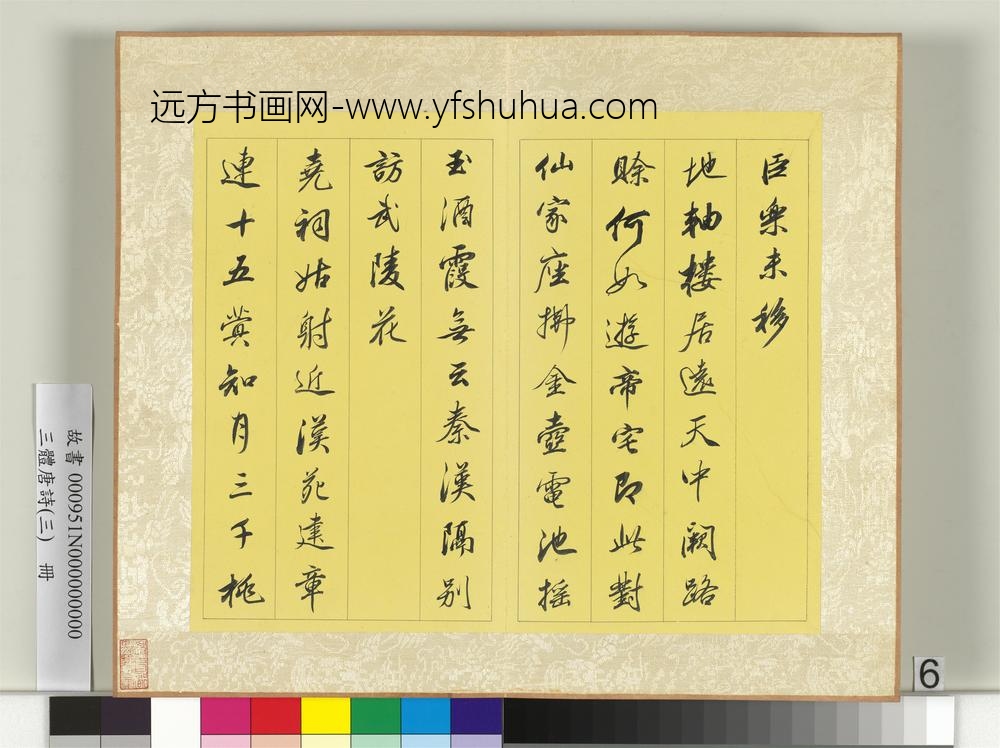 远方书画网-www.yfshuhua.com
臣樂未移
地軸樓居遠天中闕路
賒何如遊帝宅即此對
仙家座拂金壺電池搖
玉酒霞無云秦漢隔別
訪武陵花
堯祠姑射近漢苑建章
連十五蓂知月三千桃
故書 000951N000000000
三體唐詩(三) 冊
6